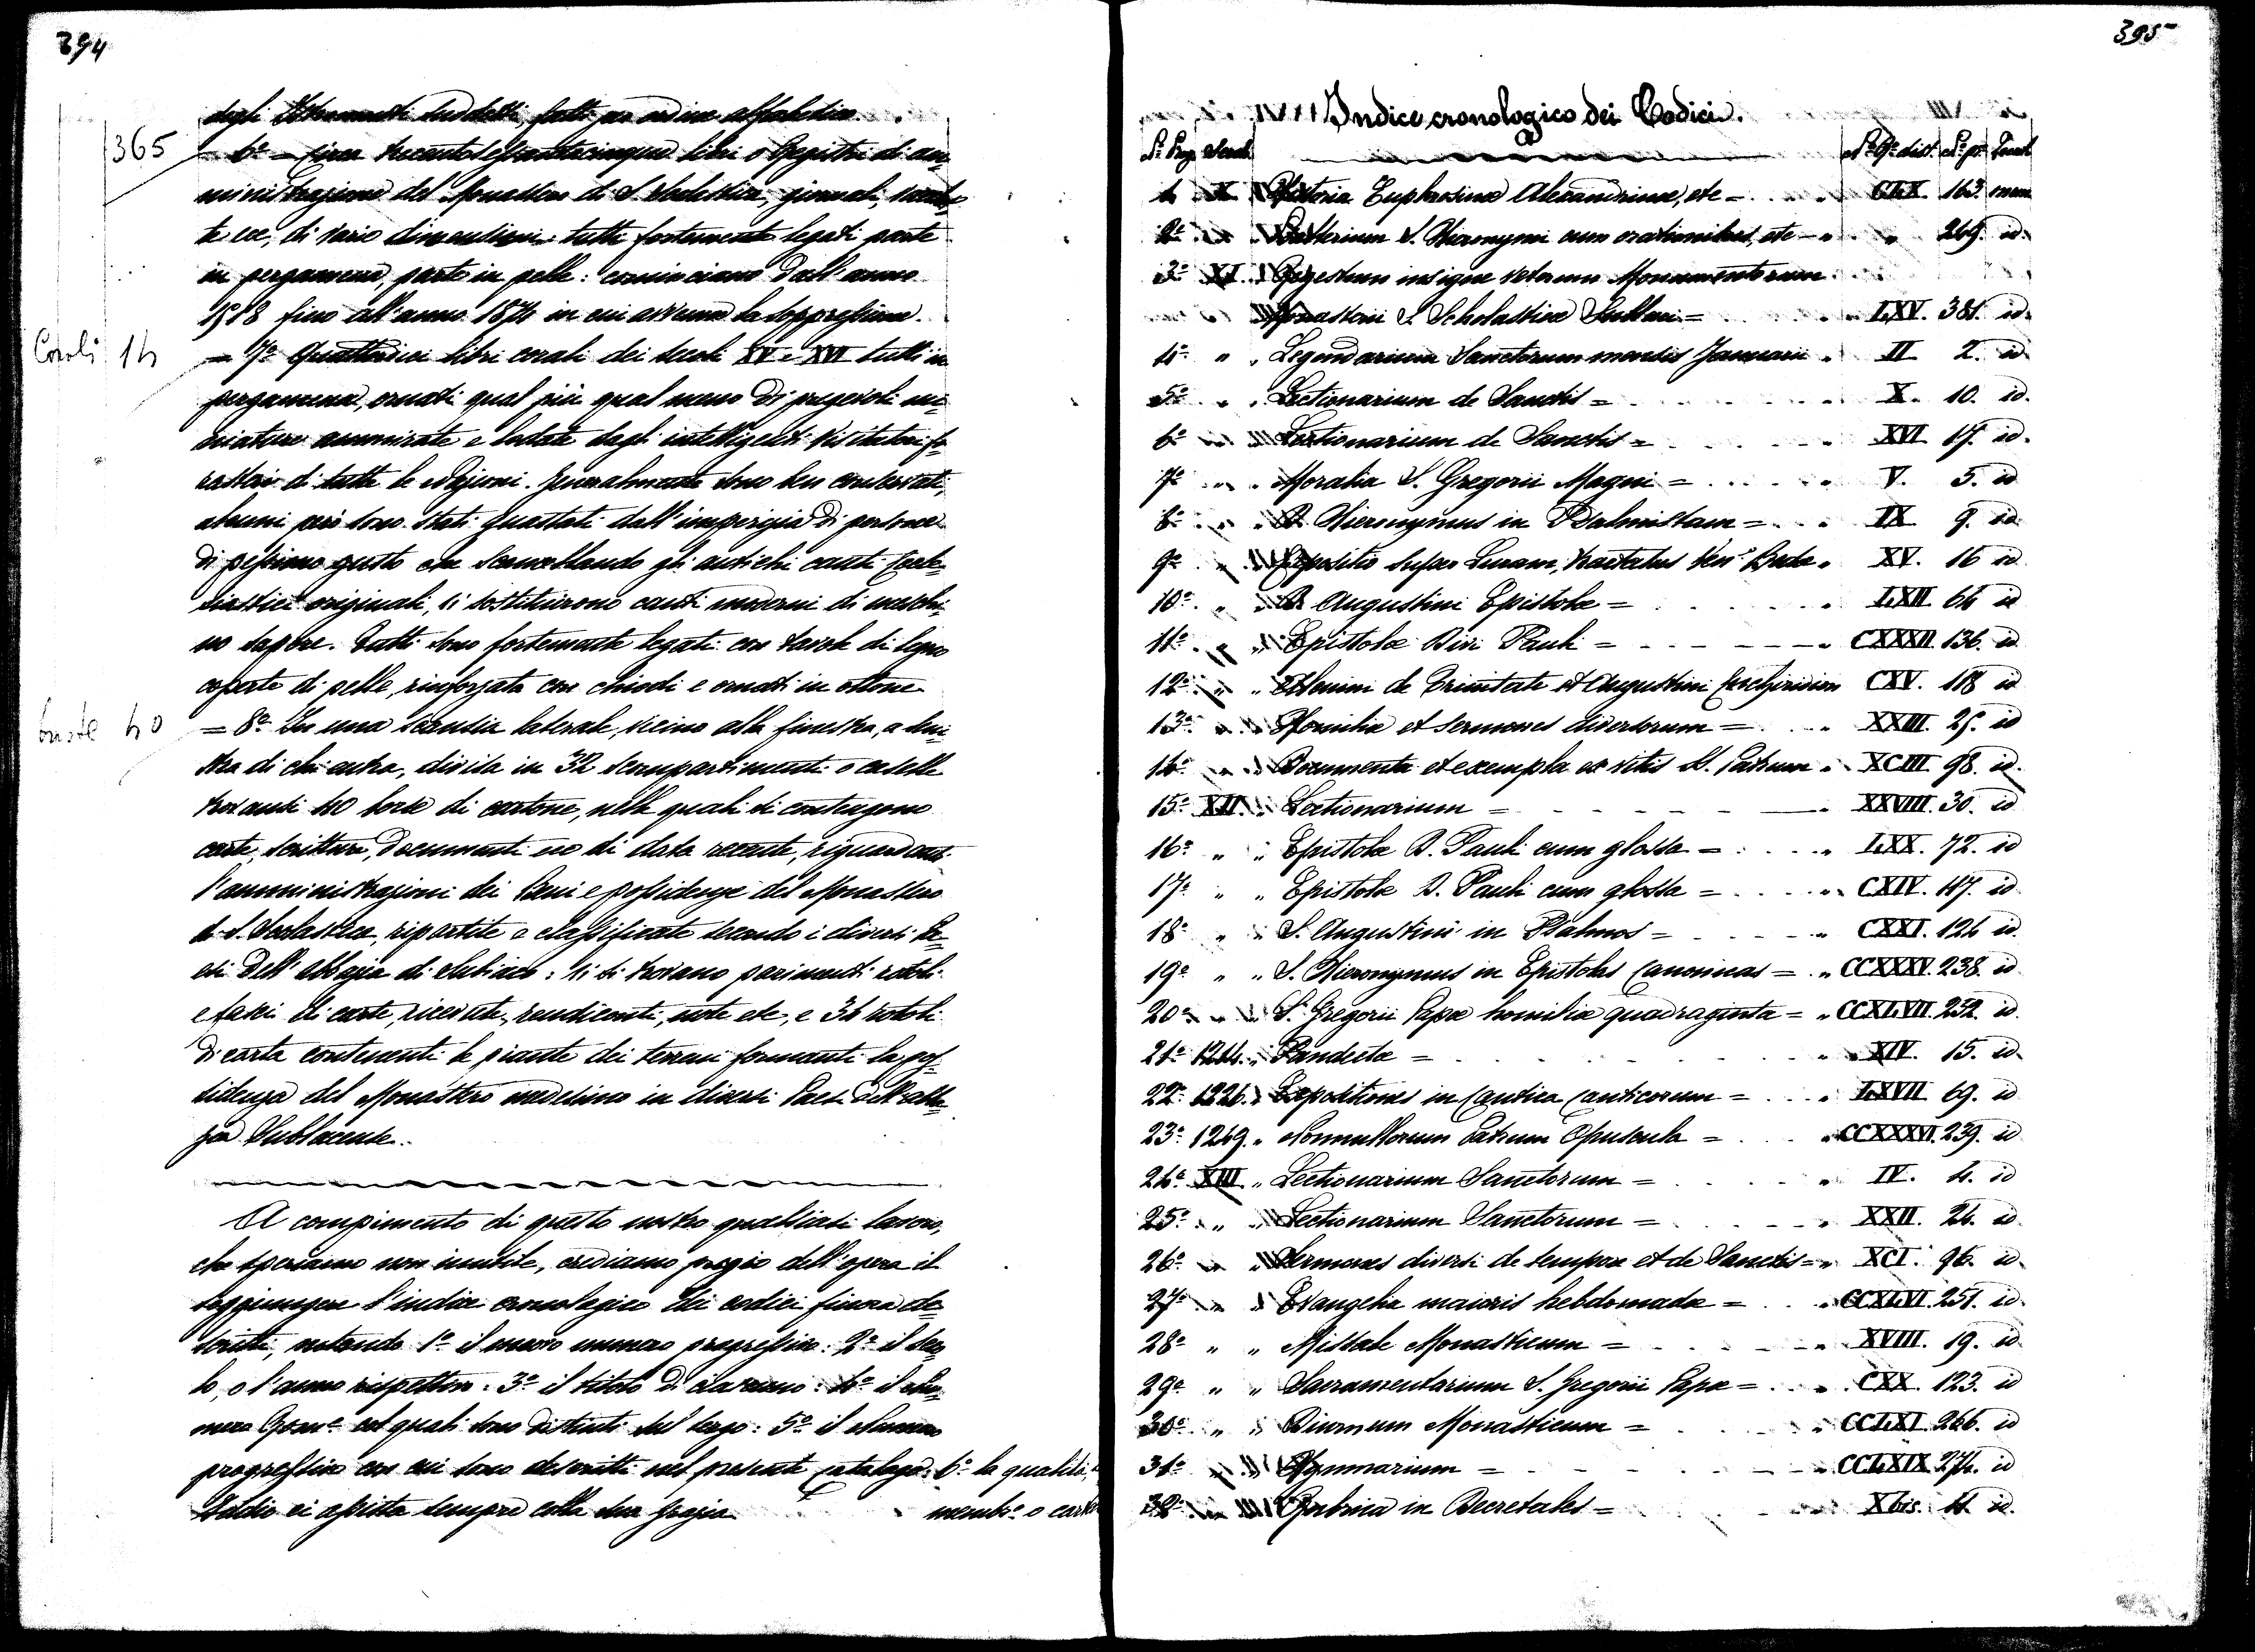 394
degli Istrumenti suddetti, fatto per ordine alfabetico.
365
= 6.° = circa trecentosessantacinque libri o Registri di am-
ministrazione del Monastero di S. Scolastica, giornali,
te ecc, di vario dimensioni: tutti fortemente legati parte
in pergamena, parte in pelle: cominciano dall'anno
1518 fino all'anno 1874 in cui avvenne la soppressione.
Corali 14
= 7.° Quattordici libri corali dei secoli XV e XVI tutti in
pergamena, ornati qual più qual meno di pregevoli mi-
niature ammirate e lodate dagli intelligenti visitatori fo-
rastieri di tutte le Nazioni. Generalmente sono ben conservati,
alcuni però sono stati guastati dall'imperizia di persone
di pessimo gusto che scancellando gli antichi canti Eccle-
siastici originali, vi sostituirono canti moderni di meschi-
no sapore. Tutti sono fortemente legati con tavole di legno
coperte di pelle, rinforzata con chiodi e ornati in ottone
buste 40
= 8.° In una scansia laterale, vicino alla finestra, a sini-
stra di chi entra, divisa in 32 scompartimenti o caselle
trovansi 40 borse di cartone, nelle quali si contengono
carte, scritture, documenti ecc di data recente, riguardanti
l'amministrazioni dei Beni e possidenze del Monastero
di S. Scolastica, ripartite e classificate secondo i diversi Pa-
esi dell'abbazia di Subiaco: Vi si trovano parimenti rotoli
e fasci di carte, ricevute, rendiconti, note etc, e 34 rotoli
di carta contenenti le piante dei terreni formanti la pos-
sidenza del Monastero medesimo in diversi Paesi dell'abba-
zia Sublacense.
A compimento di questo nostro qualsiasi lavoro,
che speriamo non inutile, crediamo pregio dell'opera il
soggiungere l'indice cronologico dei codici finora de-
scritti, notando 1.° il nuovo numero progressivo: 2.° il seco-
lo, o l'anno rispettivo: 3.° il titolo di ciascuno: 4.° il Nu-
mero Rom.° col quali sono distinti nel tergo: 5.° il Numero
progressivo con cui sono descritti nel presente catalogo: 6.° la qualità,
Iddio ci assista sempre colla sua grazia. membr.° o cart.
395
Indice cronologico dei Codici.
N.° Prog. Secoli N.° R.° dist. N.° pr. Qual.
1. X Historia Euphrosinæ Alexandrinæ, etc = CLX. 163. mem
2.° " " Psalterium S. Hieronymi cum orationibus etc = " " 249. id.
3.° XI. " Regestum insigne veterum Monumentorum
Monasterii S. Scholasticæ Sublaci = LXV. 381. id.
4.° " " Legendarium Sanctorum mensis Januarii " II 2. id
5.° " " Lectionarium de Sanctis = X. 10. id.
6.° " " Lectionarium de Sanctis = XVI 17. id.
7.° " " Moralia S. Gregorii Magni = V. 5. id
8.° " " B. Hieronymus in Psalmistam = IX 9. id
9.° " " Expositio super Lucam, tractatus Ven.s Bedæ " XV. 16 id
10.° " " B. Augustini Epistolæ = LXII 64 id
11.° " " Epistolæ Divi Pauli = CXXXII. 136. id
12.° " " Alcuini de Trinitate et Augustini Enchiridion CXV. 118 id
13.° " " Homiliæ et sermones diversorum = XXIII. 25. id
14.° " " Documenta et exempla ex vitis SS. Patrum " XCIII 98. id.
15.° XII. " Lectionarium = XXVIII. 30. id
16.° " " Epistolæ D. Pauli cum glossa = LXX. 72. id
17.° " " Epistolæ D. Pauli cum glossa = CXIV. 117. id
18.° " " S. Augustini in Psalmos = CXXI. 124 id
19.° " " S. Hieronymus in Epistolas Canonicas = " CCXXXV. 238. id
20.° " " S. Gregorii Papæ homiliæ quadraginta = " CCXLVII. 252. id
21.° 1214. " Pandectæ = XIV. 15. id.
22.° 1226. " Expositiones in Cantica Canticorum = LXVII 69. id
23.° 1249. " Nonnullorum Patrum Opuscula = CCXXXVI. 239. id
24.° XIII. " Lectionarium Sanctorum = IV. 4. id
25.° " " Lectionarium Sanctorum = XXII. 24. id
26.° " " Sermones diversi de tempore et de Sanctis = " XCI. 96. id.
27.° " " Evangelia maioris hebdomadæ = CCXLVI. 251. id.
28.° " " Missale Monasticum = XVIII. 19. id
29.° " " Sacramentarium S. Gregorii Papæ = CXX. 123. id
30.° " " Diurnum Monasticum = CCLXI. 266. id
31.° " " Hymnarium = CCLXIX. 274. id
32.° " " Rubrica in Decretales = X bis. 11 id.